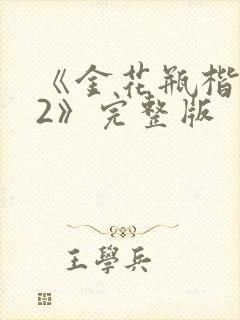 《金花瓶楷
2》完整版
王學兵